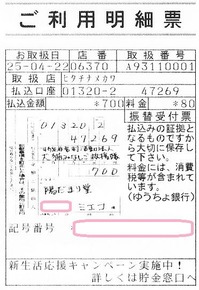 ご利用明細票
お取扱日 店番 取扱番号
25-04-22 06370 A93110001
取扱店 ミクチナメカワ
払込口座 01320-2 47269
払込金額 *700 料金 *80
振替受付票
払込みの証拠と
なるものですか
ら大切に保存し
て下さい。
料金には、消費
税等が含まれて
います。
(ゆうちょ銀行)
01320 2
47269
700
陽だまり堂
ミエコ
記号番号
新生活応援キャンペーン実施中!
詳しくは貯金窓口へ